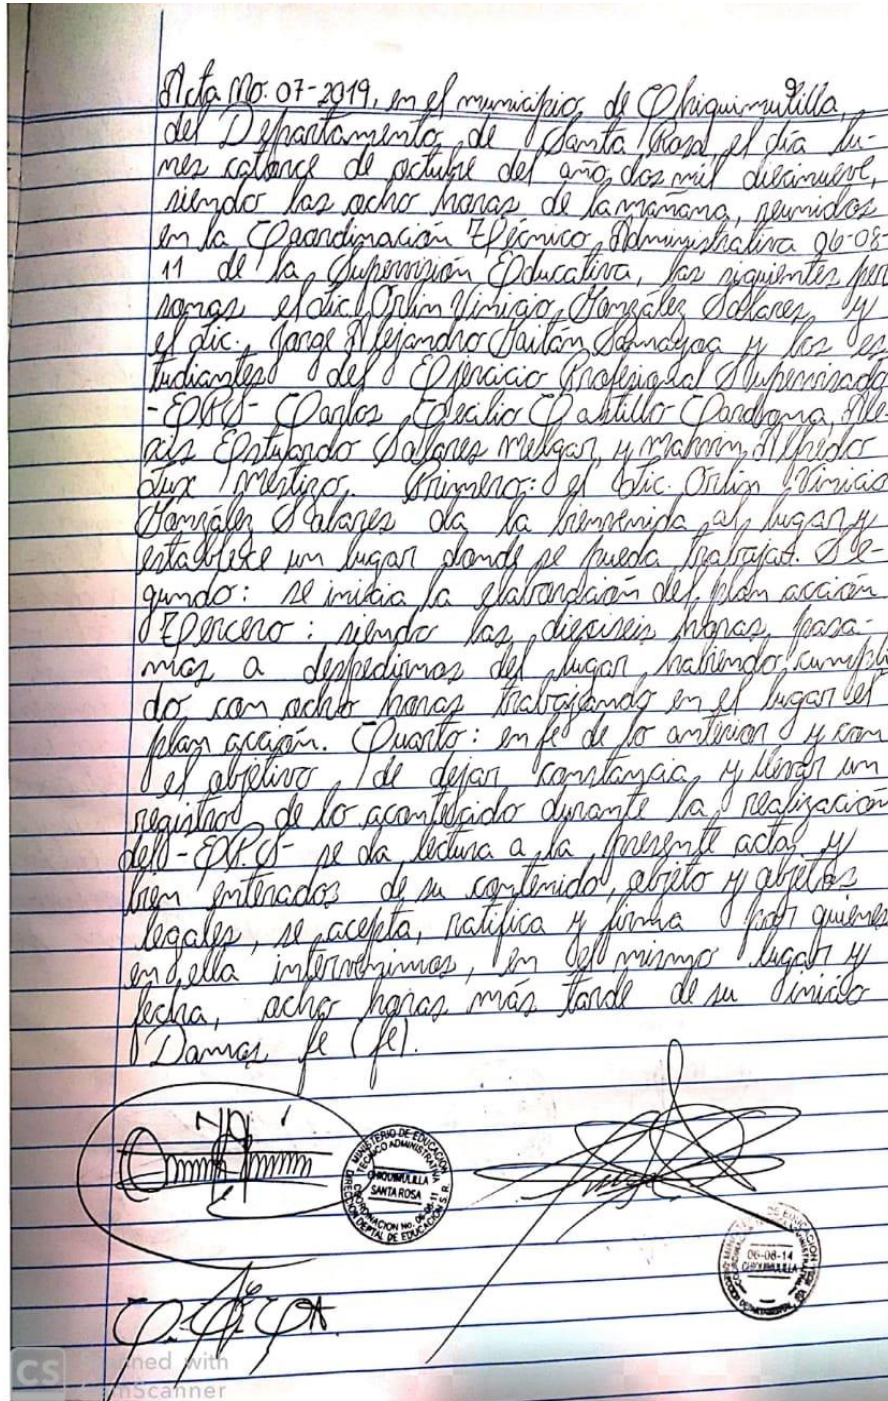 Acta No. 07-2019, en el municipio de Chiquimulilla,
del Departamento de Santa Rosa el día lu-
nes catorce de octubre del año dos mil diecinueve,
siendo las ocho horas de la mañana, reunidos
en la Coordinación Técnico Administrativa 06-08-
11 de la Supervisión Educativa, las siguientes per
sonas el Lic. Orlin Vinicio González Solares y
el Lic. Jorge Alejandro Gaitán Samayoa y los es
tudiantes del Ejercicio Profesional Supervisado
-EPS- Carlos Cecilio Castillo Cardona, Ale
xis Estuardo Solares Melgar, y Marvin Alfredo
Lux Mertizo. Primero: el Lic. Orlin Vinicio
González Solares da la bienvenida al lugar y
establece un lugar donde se pueda trabajar. Se-
gundo: se inicia la elaboración del plan acción
Tercero: siendo las dieciseis horas pasa-
mos a despedirnos del lugar habiendo cumpli
do con ocho horas trabajando en el lugar el
plan acción. Cuarto: en fe de lo anterior y con
el objetivo de dejar constancia y llevar un
registro de lo acontecido durante la realización
del -EPS- se da lectura a la presente acta y
bien enterados de su contenido, objeto y objetos
legales, se acepta, ratifica y firma por quienes
en ella intervenimos, en el mismo lugar y
fecha, ocho horas más tarde de su inicio
Damos fe (fe).
MINISTERIO DE EDUCACIÓN
TÉCNICO ADMINISTRATIVA
CHIQUIMULILLA
SANTA ROSA
COORDINACION No. 06-08-11
DIRECCION DEPTAL DE EDUCACION S. R.
06-08-14
CHIQUIMULILLA
CS Scanned with
CamScanner